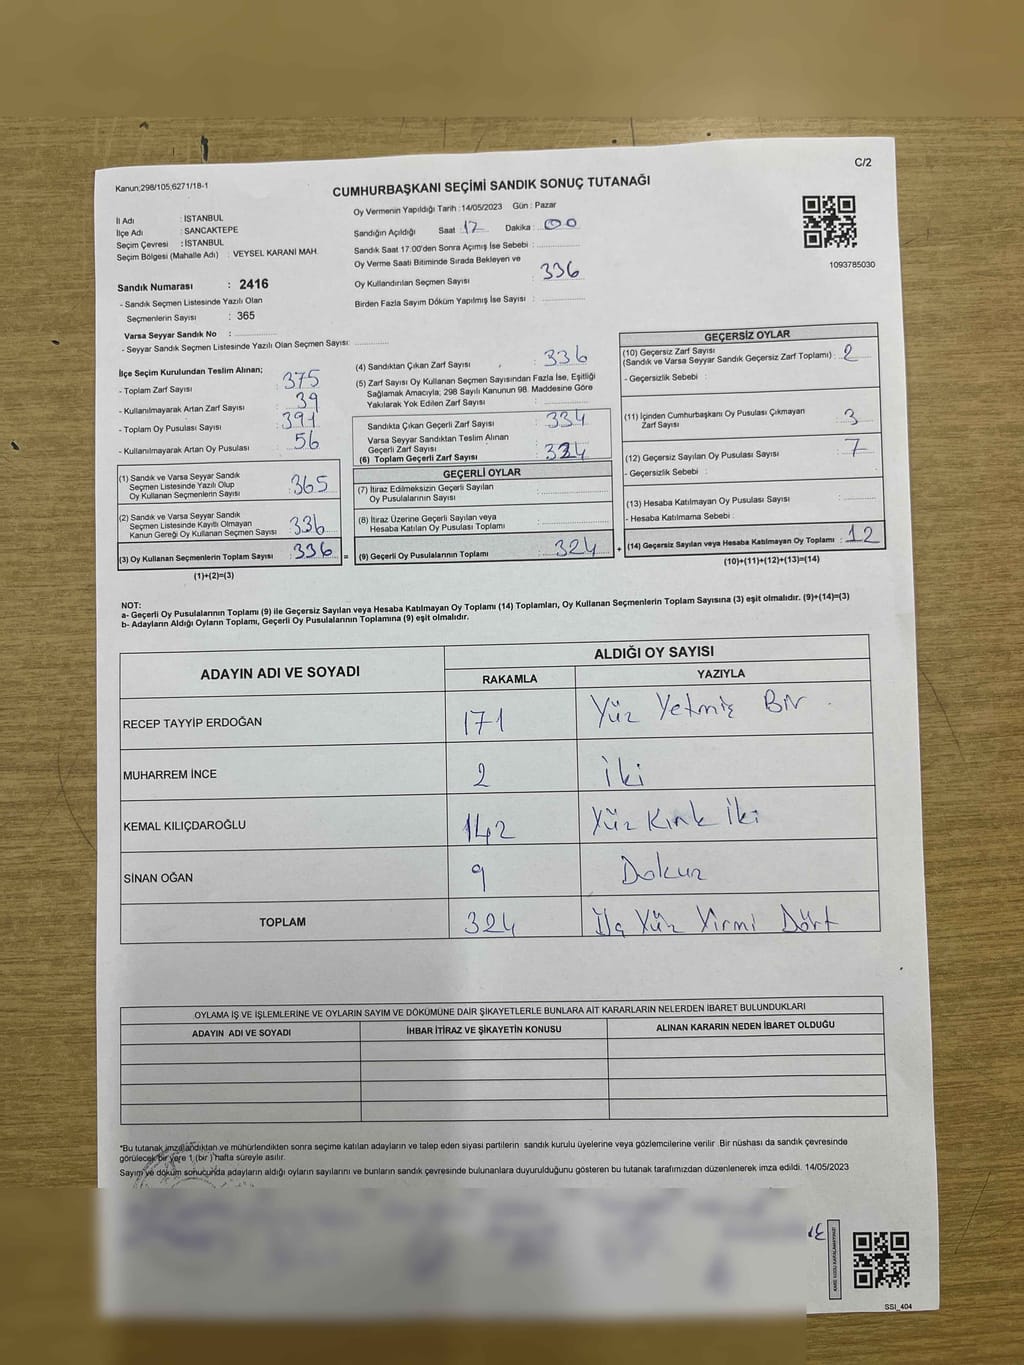 C/2
Kanun;298/105,6271/18-1
CUMHURBAŞKANI SEÇİMİ SANDIK SONUÇ TUTANAĞI
İl Adı : İSTANBUL
İlçe Adı : SANCAKTEPE
Seçim Çevresi : İSTANBUL
Seçim Bölgesi (Mahalle Adı) : VEYSEL KARANİ MAH.
Oy Vermenin Yapıldığı Tarih : 14/05/2023 Gün : Pazar
Sandığın Açıldığı Saat 17 Dakika : 00
Sandık Saat 17:00'den Sonra Açımış İse Sebebi :
Oy Verme Saati Bitiminde Sırada Bekleyen ve
Oy Kullandırılan Seçmen Sayısı : 336
Birden Fazla Sayım Döküm Yapılmış İse Sayısı :
1093785030
Sandık Numarası : 2416
- Sandık Seçmen Listesinde Yazılı Olan
Seçmenlerin Sayısı : 365
Varsa Seyyar Sandık No :
- Seyyar Sandık Seçmen Listesinde Yazılı Olan Seçmen Sayısı:
İlçe Seçim Kurulundan Teslim Alınan;
- Toplam Zarf Sayısı : 375
- Kullanılmayarak Artan Zarf Sayısı : 39
- Toplam Oy Pusulası Sayısı : 391
- Kullanılmayarak Artan Oy Pusulası : 56
(1) Sandık ve Varsa Seyyar Sandık
Seçmen Listesinde Yazılı Olup
Oy Kullanan Seçmenlerin Sayısı : 365
(2) Sandık ve Varsa Seyyar Sandık
Seçmen Listesinde Kayıtlı Olmayan
Kanun Gereği Oy Kullanan Seçmen Sayısı : 336
(3) Oy Kullanan Seçmenlerin Toplam Sayısı : 336 =
(1)+(2)=(3)
(4) Sandıktan Çıkan Zarf Sayısı : 336
(5) Zarf Sayısı Oy Kullanan Seçmen Sayısından Fazla İse, Eşitliği
Sağlamak Amacıyla, 298 Sayılı Kanunun 98. Maddesine Göre
Yakılarak Yok Edilen Zarf Sayısı :
Sandıkta Çıkan Geçerli Zarf Sayısı : 334
Varsa Seyyar Sandıktan Teslim Alınan
Geçerli Zarf Sayısı :
(6) Toplam Geçerli Zarf Sayısı : 324
GEÇERLİ OYLAR
(7) İtiraz Edilmeksizin Geçerli Sayılan
Oy Pusulalarının Sayısı :
(8) İtiraz Üzerine Geçerli Sayılan veya
Hesaba Katılan Oy Pusulası Toplamı :
(9) Geçerli Oy Pusulalarının Toplamı : 324 +
GEÇERSİZ OYLAR
(10) Geçersiz Zarf Sayısı
(Sandık ve Varsa Seyyar Sandık Geçersiz Zarf Toplamı) : 2
- Geçersizlik Sebebi :
(11) İçinden Cumhurbaşkanı Oy Pusulası Çıkmayan
Zarf Sayısı : 3
(12) Geçersiz Sayılan Oy Pusulası Sayısı : 7
- Geçersizlik Sebebi :
(13) Hesaba Katılmayan Oy Pusulası Sayısı :
- Hesaba Katılmama Sebebi :
(14) Geçersiz Sayılan veya Hesaba Katılmayan Oy Toplamı : 12
(10)+(11)+(12)+(13)=(14)
NOT:
a- Geçerli Oy Pusulalarının Toplamı (9) ile Geçersiz Sayılan veya Hesaba Katılmayan Oy Toplamı (14) Toplamları, Oy Kullanan Seçmenlerin Toplam Sayısına (3) eşit olmalıdır. (9)+(14)=(3)
b- Adayların Aldığı Oyların Toplamı, Geçerli Oy Pusulalarının Toplamına (9) eşit olmalıdır.
ADAYIN ADI VE SOYADI
ALDIĞI OY SAYISI
RAKAMLA YAZIYLA
RECEP TAYYİP ERDOĞAN 171 Yüz Yetmiş Bir
MUHARREM İNCE 2 iki
KEMAL KILIÇDAROĞLU 142 Yüz Kırk İki
SİNAN OĞAN 9 Dokuz
TOPLAM 324 Üç Yüz Yirmi Dört
OYLAMA İŞ VE İŞLEMLERİNE VE OYLARIN SAYIM VE DÖKÜMÜNE DAİR ŞİKAYETLERLE BUNLARA AİT KARARLARIN NELERDEN İBARET BULUNDUKLARI
ADAYIN ADI VE SOYADI İHBAR İTİRAZ VE ŞİKAYETİN KONUSU ALINAN KARARIN NEDEN İBARET OLDUĞU
*Bu tutanak imzalandıktan ve mühürlendikten sonra seçime katılan adayların ve talep eden siyasi partilerin sandık kurulu üyelerine veya gözlemcilerine verilir .Bir nüshası da sandık çevresinde
görülecek bir yere 1 (bir ) hafta süreyle asılır.
Sayım ve döküm sonucunda adayların aldığı oyların sayılarını ve bunların sandık çevresinde bulunanlara duyurulduğunu gösteren bu tutanak tarafımızdan düzenlenerek imza edildi. 14/05/2023
SSI_404